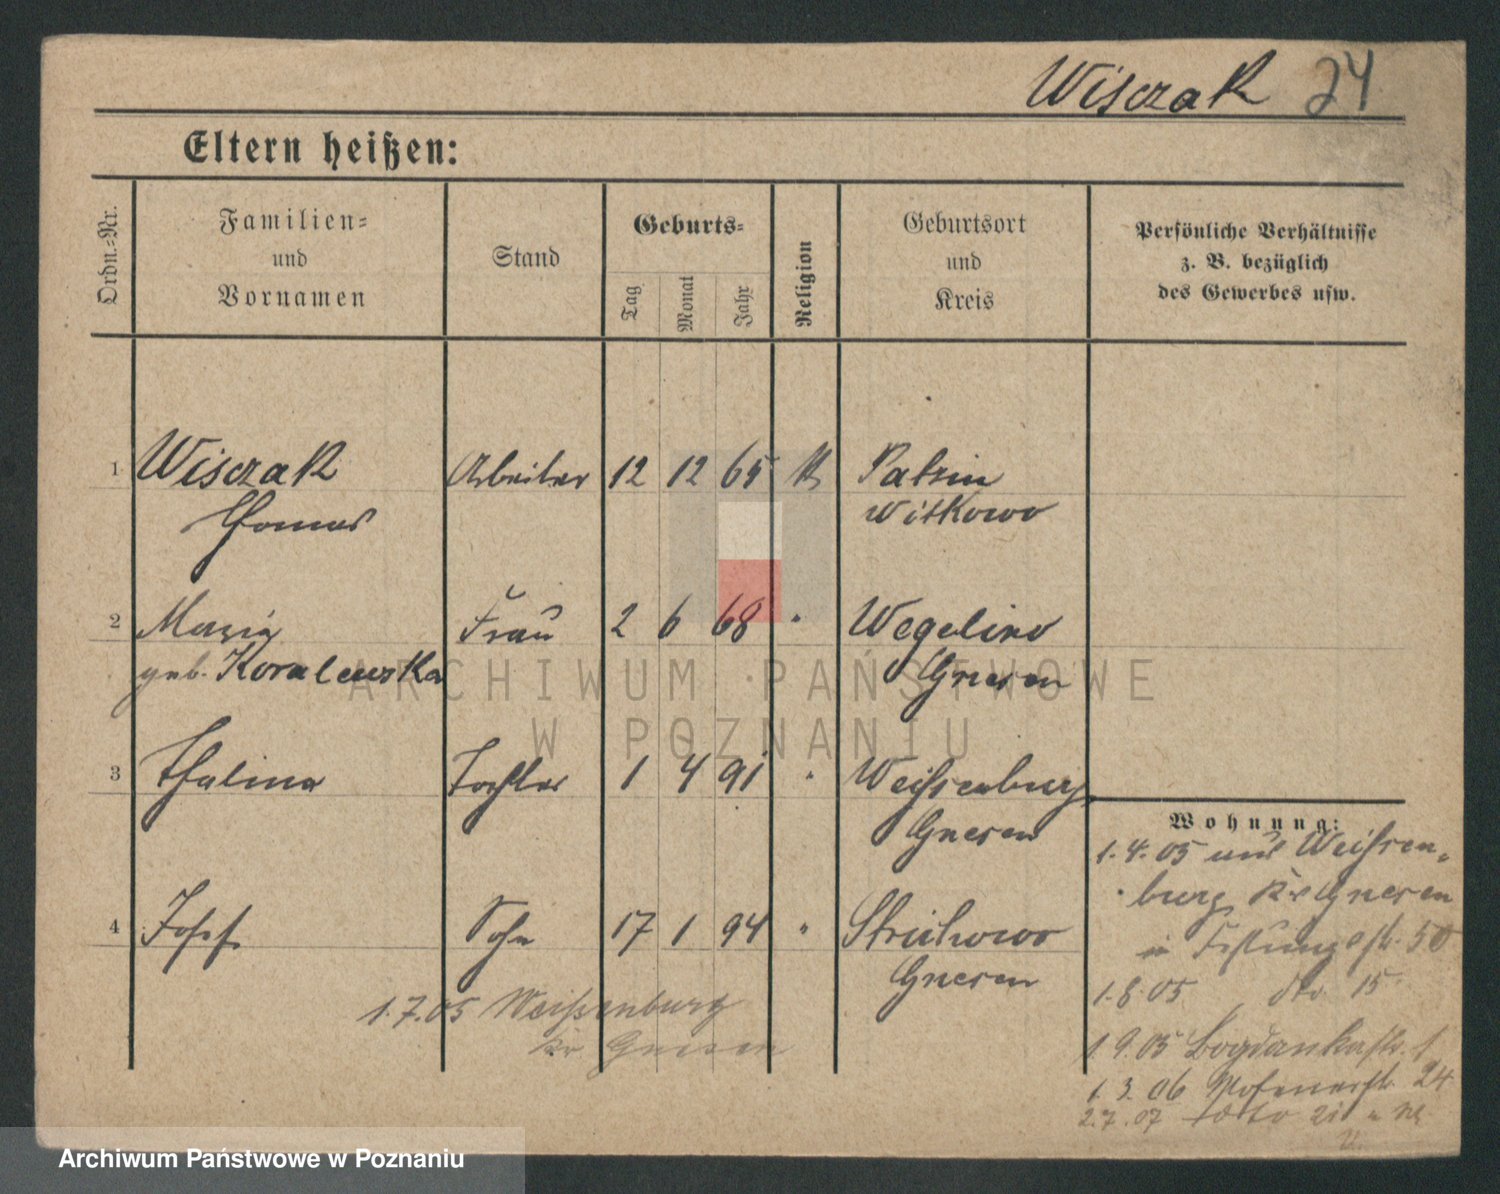 Wisczak 24
Eltern heißen:
Ordn.-Nr.
Familien-
und
Vornamen
Stand
Geburts-
Tag
Monat
Jahr
Religion
Geburtsort
und
Kreis
Persönliche Verhältnisse
z. B. bezüglich
des Gewerbes usw.
1 Wisczak Arbeiter 12 12 65 K Patrin
Thomas Witkowo
2 Frau 2 6 68 " Wegelino
geb. Koralewska Gnesen
3 Halina Tochter 1 4 91 " Weißenburg
Gnesen
Wohnung:
1.4.05 aus Weißen-
burg Kr Gnesen
4 Josef Sohn 17 1 94 "
in 50
Gnesen
1.8.05 dto 15
1.7.05 Weißenburg
Kr Gnesen
1.9.05 Bogdankastr. 1
1.3.06 Posenerstr. 24
2.7.07
ARCHIWUM PAŃSTWOWE
W POZNANIU
Archiwum Państwowe w Poznaniu